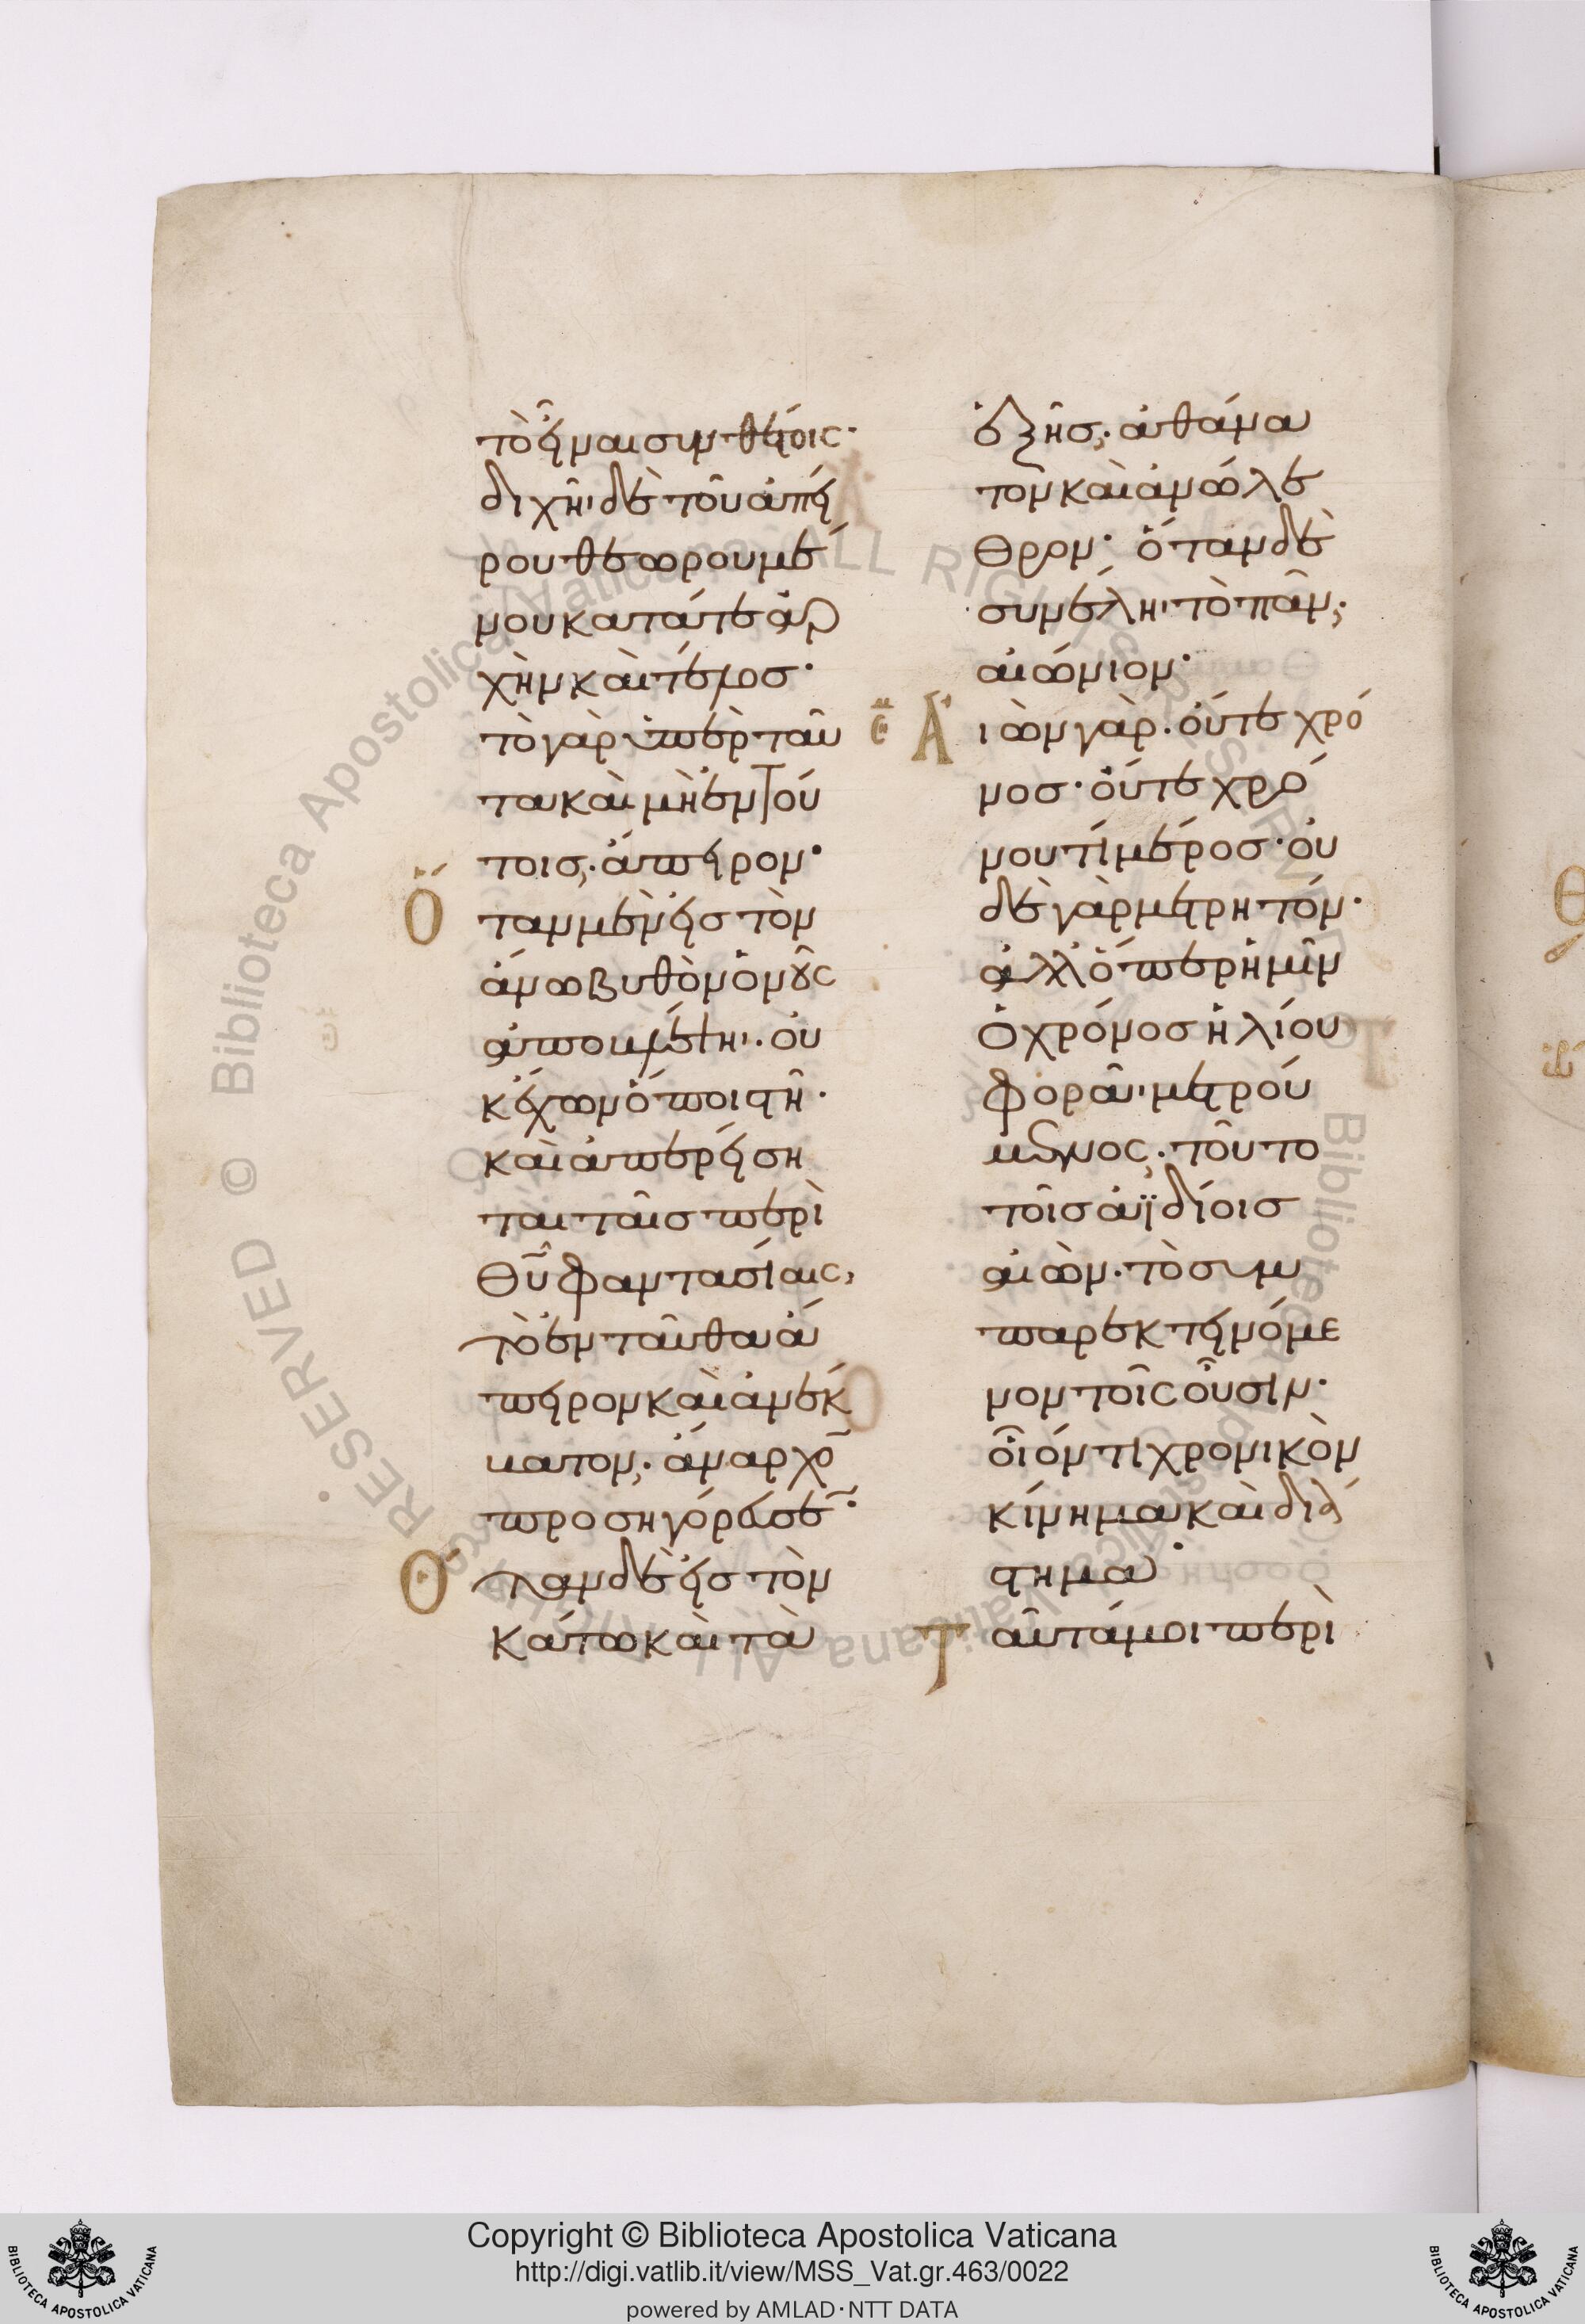 τὸ εἶναι συνθέτοις·
διχῆι δὲ τοῦ ἀπεί
ρου θεωρουμέ
νου κατά τε ἀρ
χὴν καὶ τέλος·
τὸ γὰρ ὑπὲρ ταῦ
τα καὶ μὴ ἐν τού
τοις, ἄπειρον·
Ὅ
ταν μὲν εἰς τὸν
ἄνω βυθὸν ὁ νοῦς
ἀποβλέψηι· οὐ
κ ἔχων ὅποι στῆι·
καὶ ἀπερείση
ται ταῖς περὶ
θυ φαντασίαις,
τὸ ἐνταῦθα ἄ
πειρον καὶ ἀνέκ
βατον, ἄναρχον
προσηγόρευσε·
Ὅ
ταν δὲ εἰς τὸν
κάτω καὶ τὰ
ἑξῆς, ἀθάνα
τον καὶ ἀνώλε
θρον· ὅταν δὲ
συνέληι τὸ πᾶν,
αἰώνιον·
Αἰ
ὼν γὰρ· οὔτε χρό
νος· οὔτε χρό
νου τί μέρος· οὐ
δὲ γὰρ μετρητόν·
ἀλλ' ὅπερ ἡμῖν
ὁ χρόνος ἡλίου
φορᾶι μετρού
μενος, τοῦτο
τοῖς ἀϊδίοις
αἰὼν· τὸ συμ
παρεκτεινόμε
νον τοῖς οὖσιν·
οἷόν τι χρονικὸν
κίνημα καὶ διά
στημα·
Τ
αῦτά μοι περὶ
Copyright © Biblioteca Apostolica Vaticana
http://digi.vatlib.it/view/MSS_Vat.gr.463/0022
powered by AMLAD · NTT DATA
BIBLIOTECA APOSTOLICA VATICANA
BIBLIOTECA APOSTOLICA VATICANA